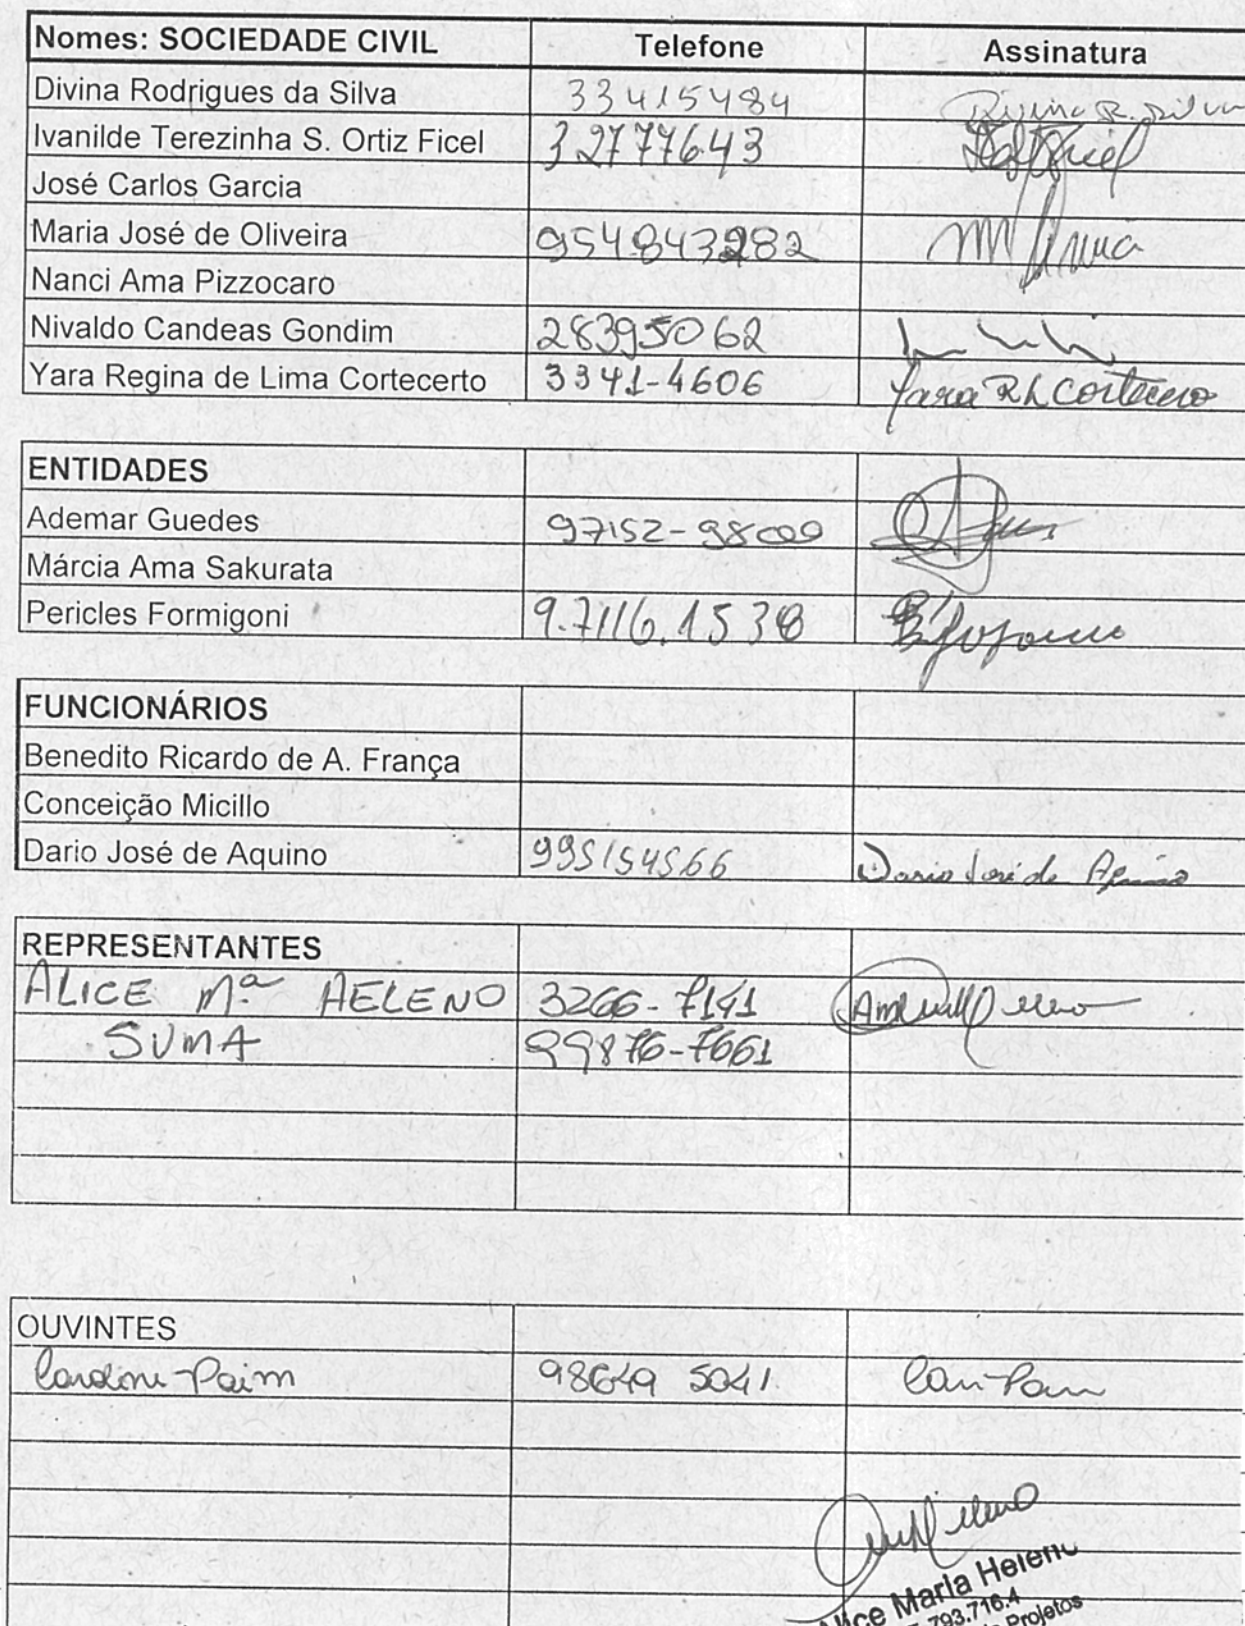 Nomes: SOCIEDADE CIVIL Telefone Assinatura
Divina Rodrigues da Silva 33415484 Divina R. Silva
Ivanilde Terezinha S. Ortiz Ficel 32777643
José Carlos Garcia
Maria José de Oliveira 954843282
Nanci Ama Pizzocaro
Nivaldo Candeas Gondim 28395062
Yara Regina de Lima Cortecerto 3341-4606 Yara R L Cortecerto
ENTIDADES
Ademar Guedes 97152-9800
Márcia Ama Sakurata
Pericles Formigoni 9.7116.1538
FUNCIONÁRIOS
Benedito Ricardo de A. França
Conceição Micillo
Dario José de Aquino 995154566 Dario José de Aquino
REPRESENTANTES
ALICE Mª HELENO 3266-7141
SUMA 99876-7661
OUVINTES
Caroline Paim 98649 5041
Alice Maria Heleno
793.716.4
Projetos